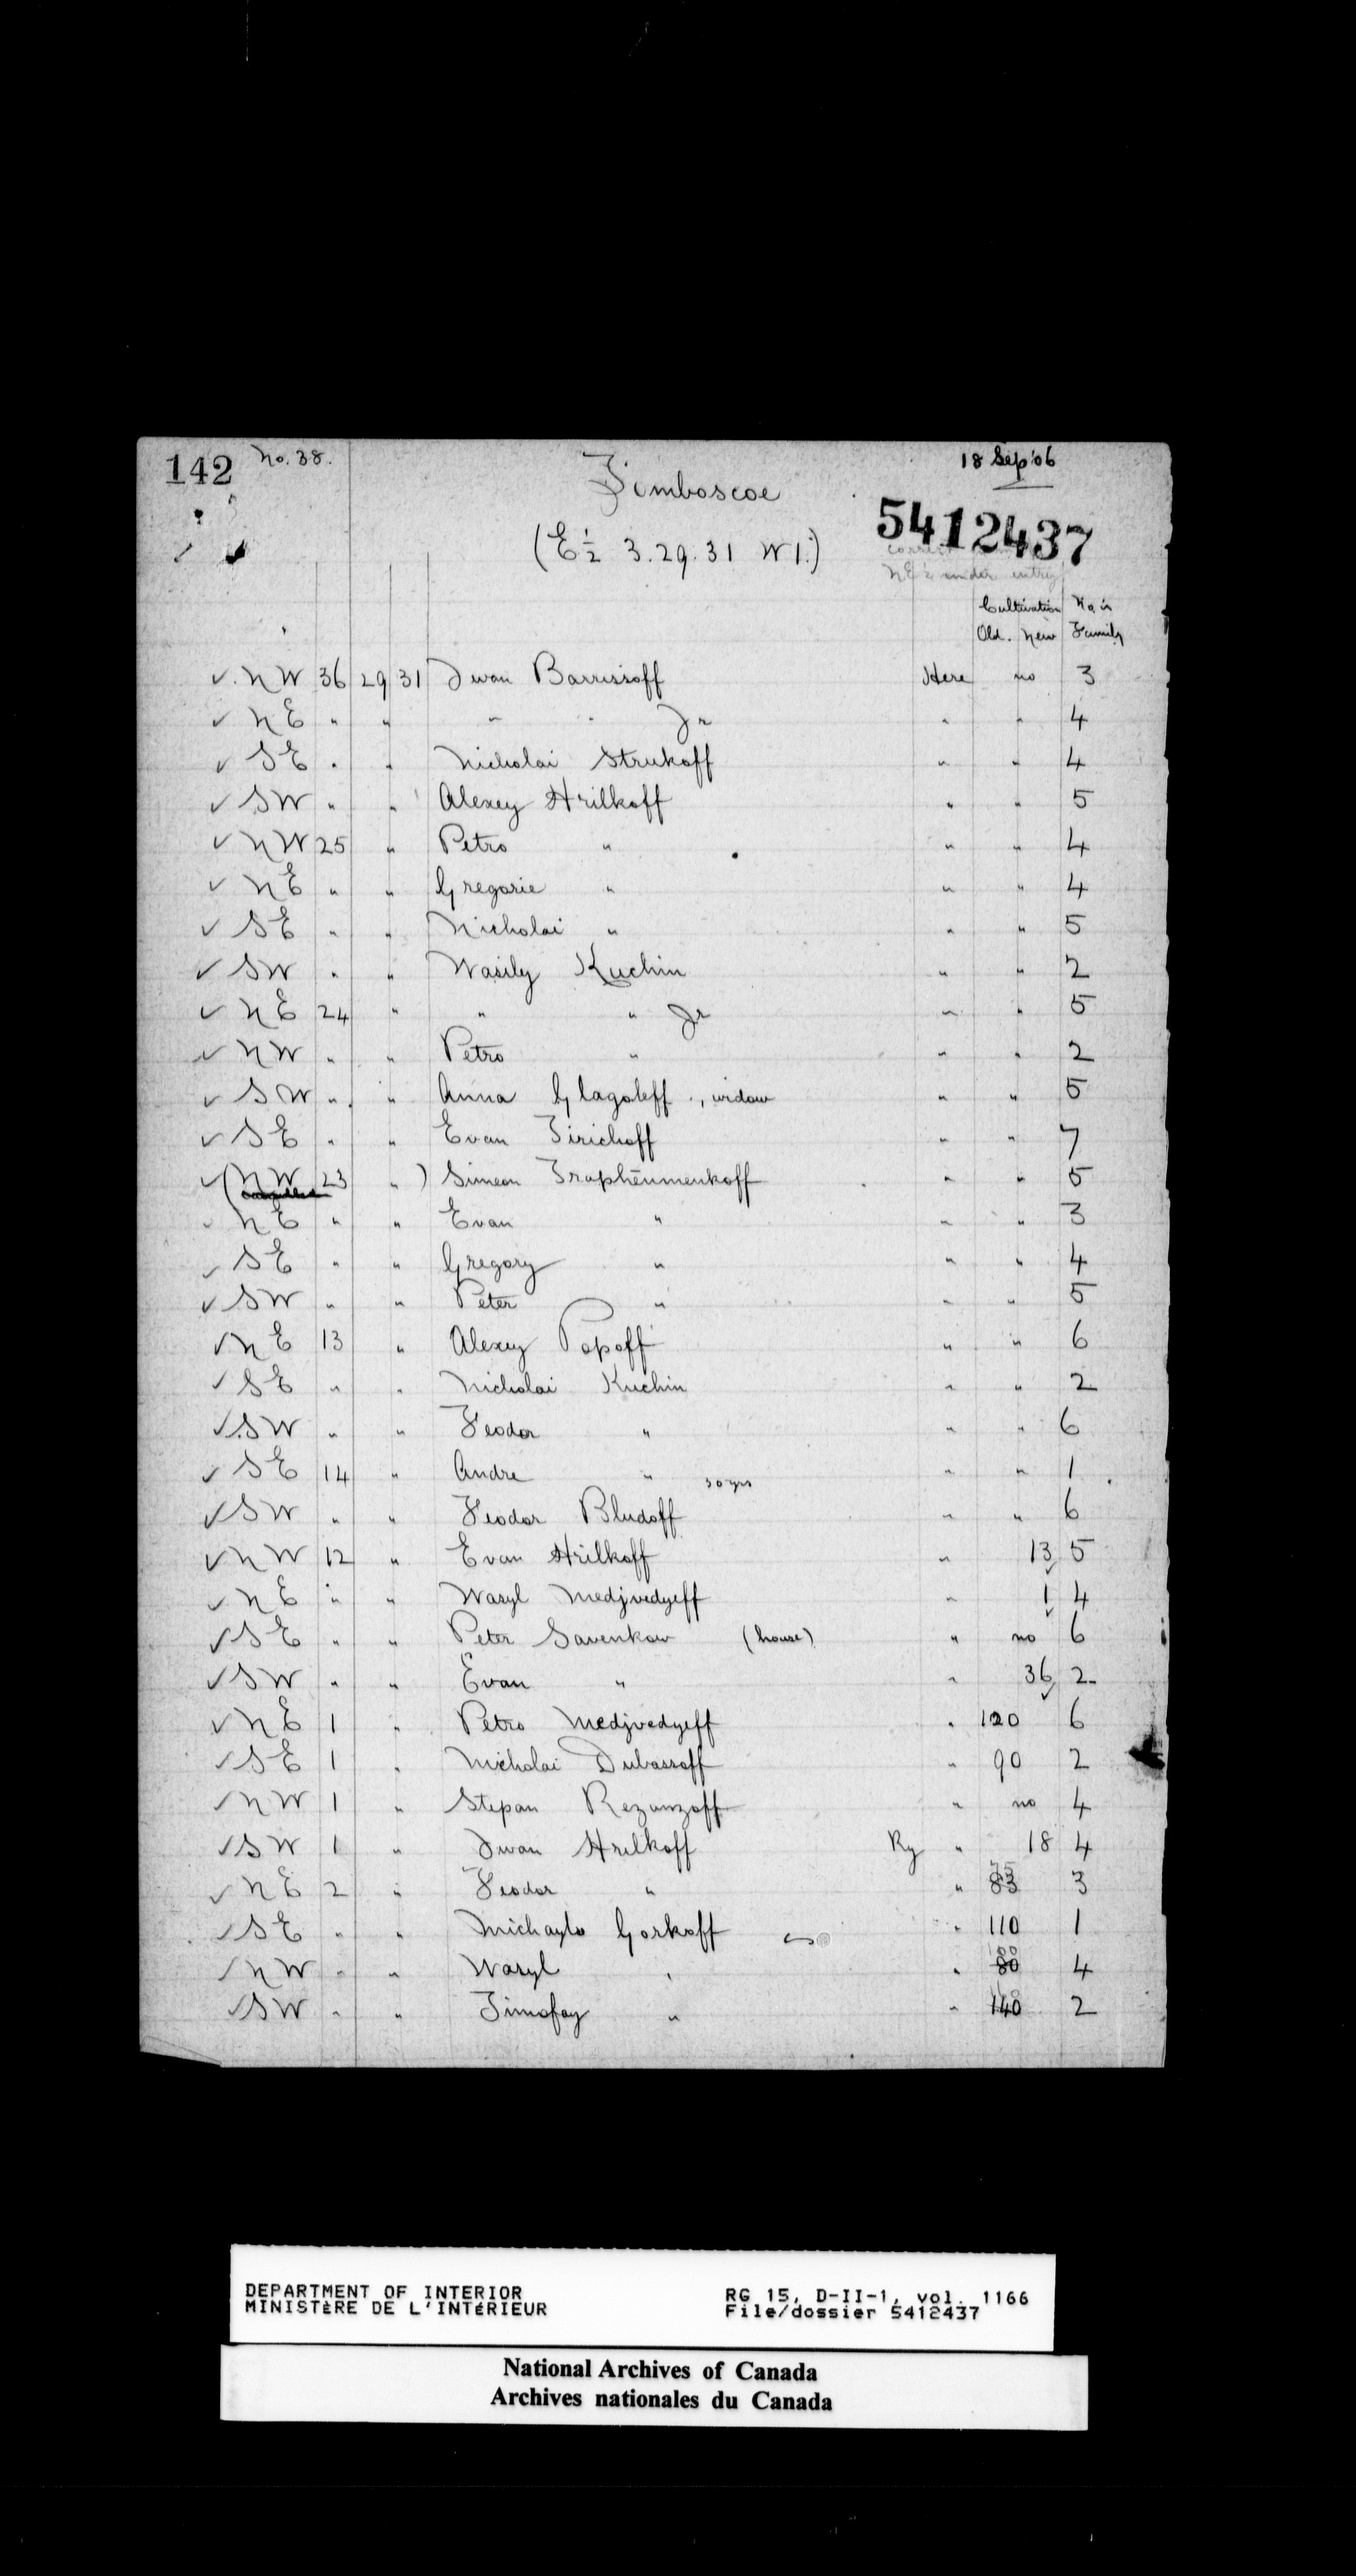 142 No. 38. 18 Sep '06
Timboscoe
5412437
(E½ 3.29.31 W1.)
correct
NE¼ under entry
Cultivation No. in
Old. New Family
✓ NW 36 29 31 Iwan Barrissoff Here no 3
✓ NE " " " " Jr " " 4
✓ SE " " Nicholai Strukoff " " 4
✓ SW " " Alexey Hrilkoff " " 5
✓ NW 25 " Petro " " " 4
✓ NE " " Gregorie " " " 4
✓ SE " " Nicholai " " " 5
✓ SW " " Wasily Kuchin " " 2
✓ NE 24 " " " Jr " " 5
✓ NW " " Petro " " " 2
✓ SW " " Anna Glagoleff, widow " " 5
✓ SE " " Evan Tirichoff " " 7
✓ (NW 23 " ) Simeon Traphenmenkoff " " 5
✓ NE " " Evan " " " 3
✓ SE " " Gregory " " " 4
✓ SW " " Peter " " " 5
✓ NE 13 " Alexey Popoff " " 6
✓ SE " " Nicholai Kuchin " " 2
✓ SW " " Feodor " " " 6
✓ SE 14 " Andre " 30 yrs " " 1
✓ SW " " Feodor Bludoff " " 6
✓ NW 12 " Evan Hrilkoff " 13 5
✓ NE " " Wasyl Medjvedyeff " 1 4
✓ SE " " Peter Savenkow (house) " no 6
✓ SW " " Evan " " 36 2
✓ NE 1 " Petro Medjvedyeff " 120 6
✓ SE 1 " Nicholai Dubassoff " 90 2
✓ NW 1 " Stepan Rezanzoff " no 4
✓ SW 1 " Iwan Hrilkoff Ry " 18 4
✓ NE 2 " Feodor " " 75 83 3
✓ SE " " Michaylo Gorkoff " 110 1
✓ NW " " Wasyl " " 100 80 4
✓ SW " " Timofay " " 140 2
DEPARTMENT OF INTERIOR RG 15, D-II-1, vol. 1166
MINISTÈRE DE L'INTÉRIEUR File/dossier 5412437
National Archives of Canada
Archives nationales du Canada